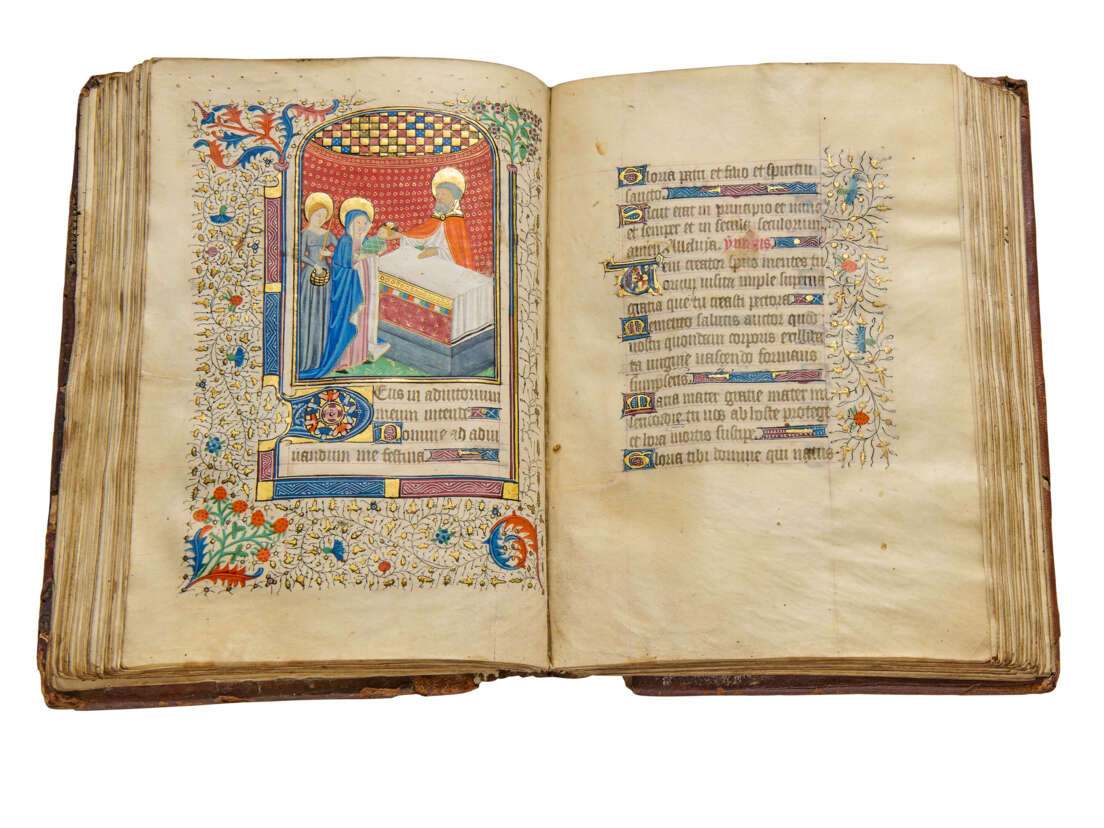 Deus in adiutorium
meum intende
Domine ad adiu
uandum me festina
Gloria patri et filio et spiritui
sancto.
Sicut erat in principio et nunc
et semper et in secula seculorum
amen. Alleluia. ymnus.
Veni creator sp̄us mentes tu
orum uisita imple superna
gratia que tu creasti pectora
Memento salutis auctor quod
nostri quondam corporis ex illiba
ta uirgine nascendo formam
sumpseris
Maria mater gratie mater mi
sericordie tu nos ab hoste protege
et hora mortis suscipe
Gloria tibi domine qui natus